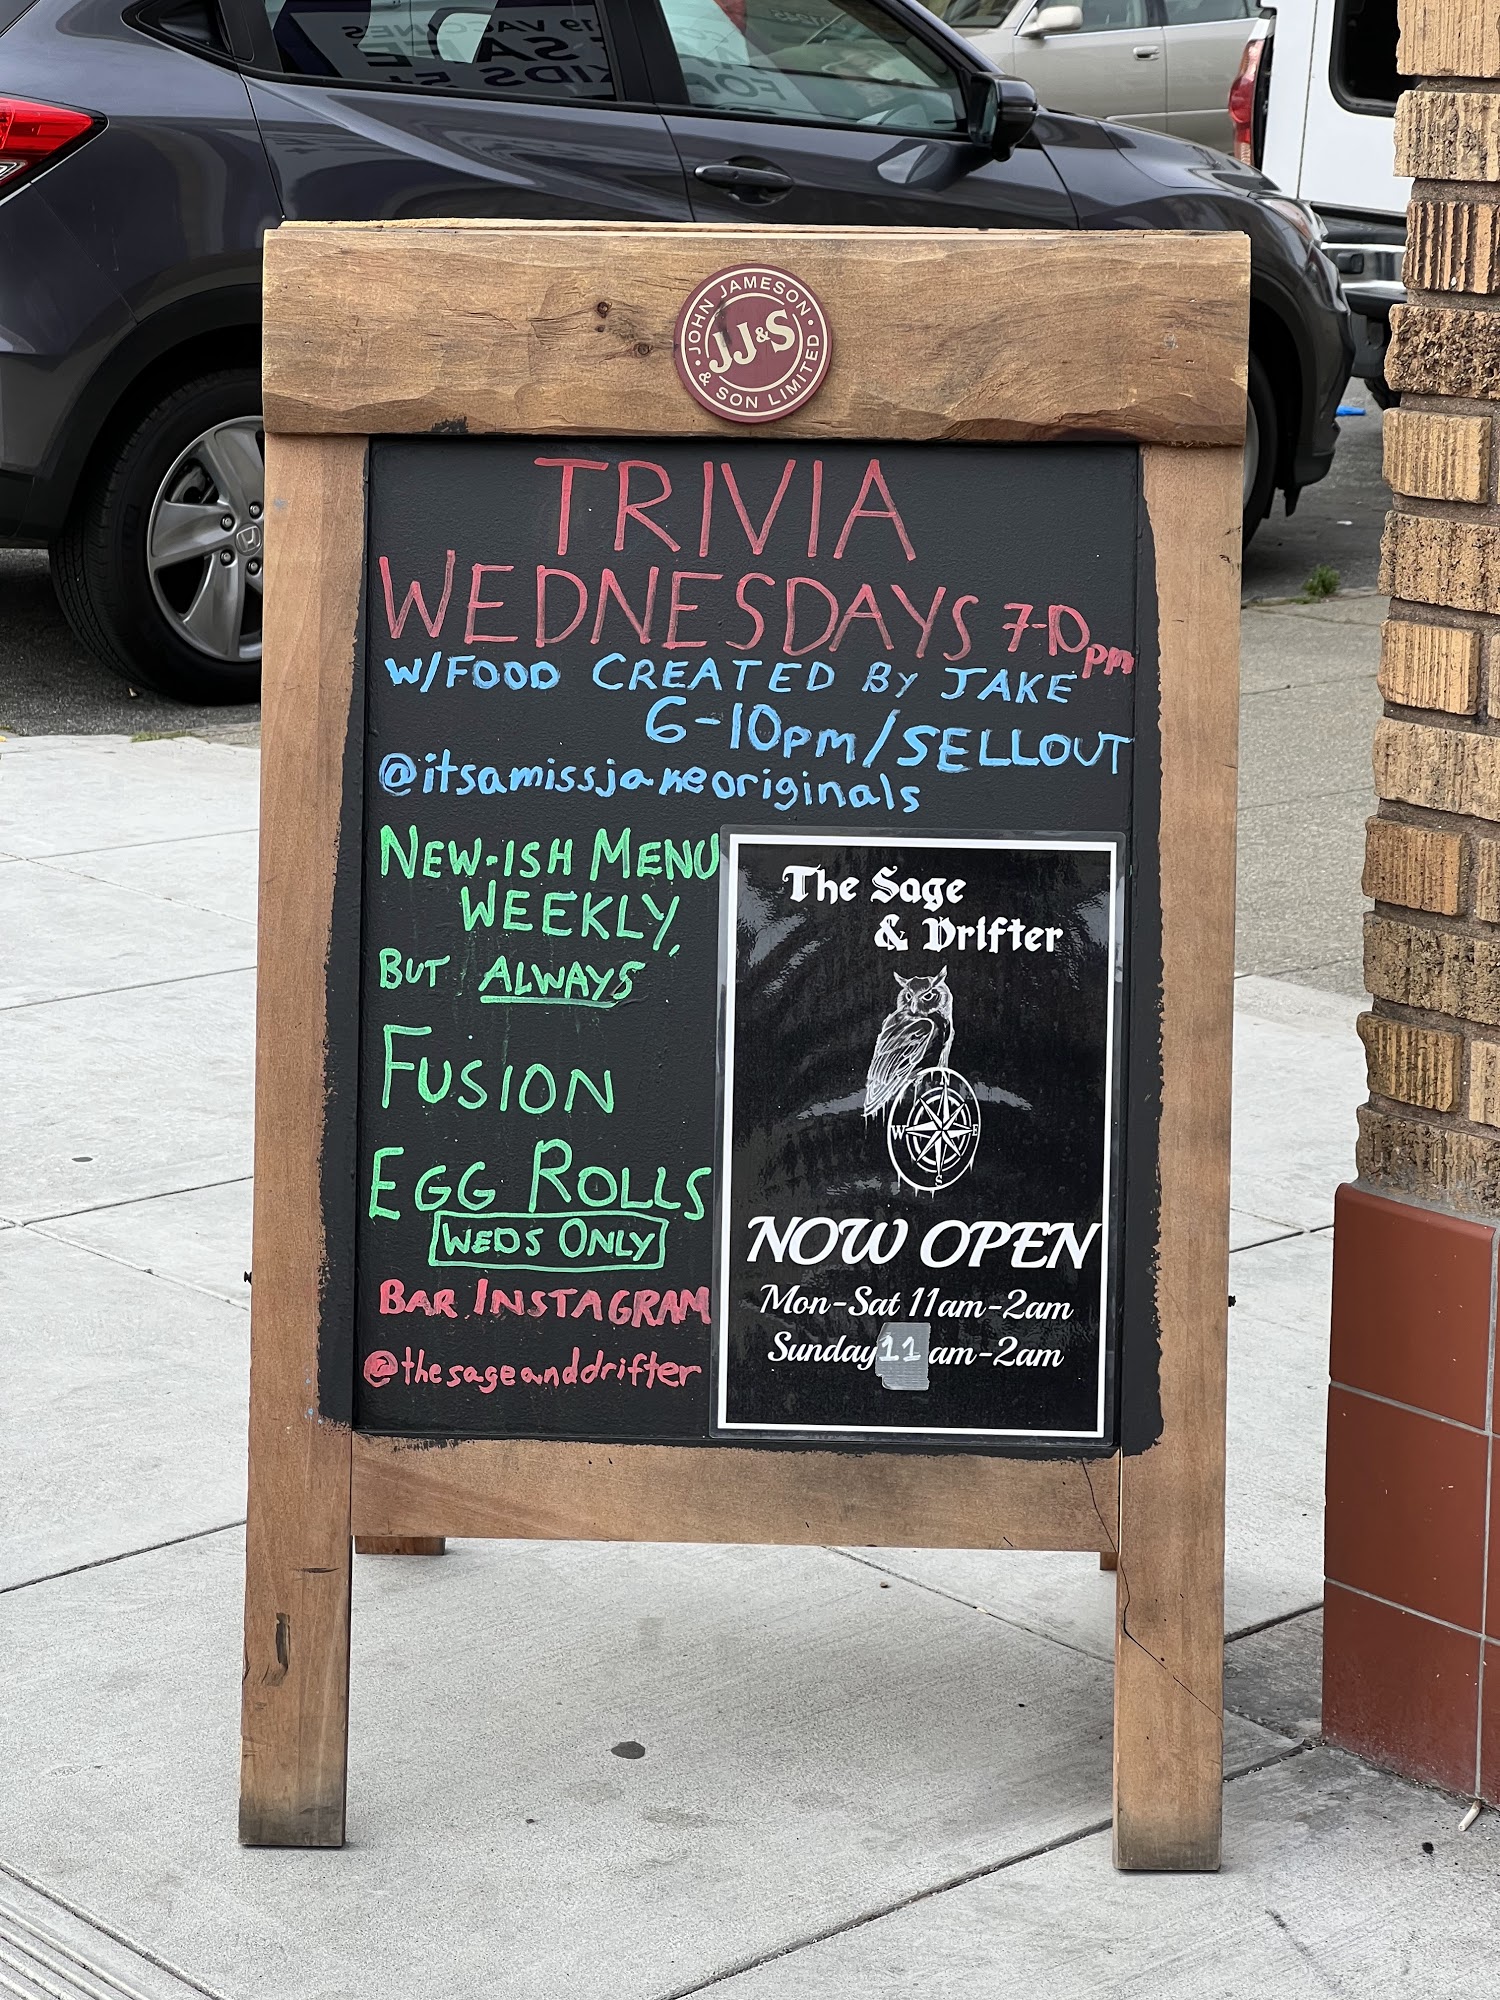 JOHN JAMESON
JJ&S
& SON LIMITED
TRIVIA
WEDNESDAYS 7-10pm
W/FOOD CREATED BY JAKE
6-10pm/SELLOUT
@itsamissjakeoriginals
NEW-ISH MENU
WEEKLY,
BUT ALWAYS
FUSION
EGG ROLLS
WEDS ONLY
BAR INSTAGRAM
@thesageanddrifter
The Sage
& Drifter
N
W E
S
NOW OPEN
Mon-Sat 11am-2am
Sunday 11 am-2am